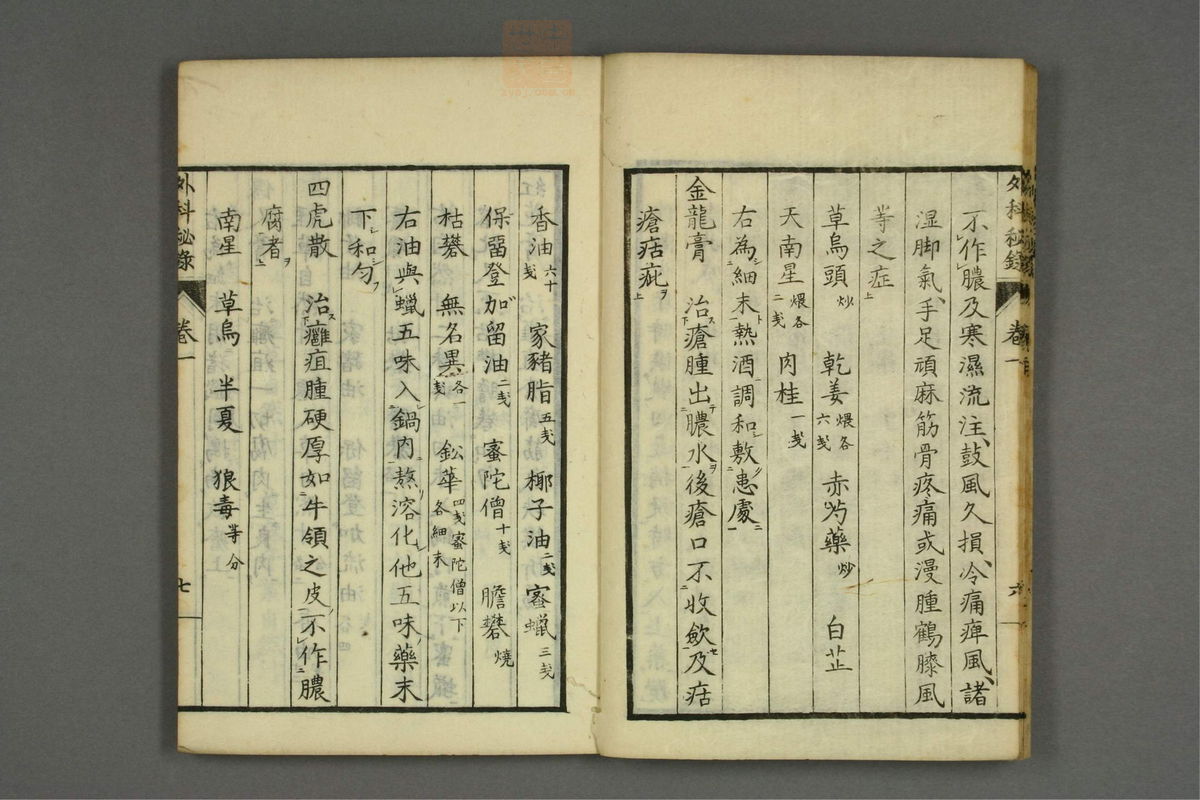 外科秘錄 卷一 六
不作膿及寒濕流注鼓風久損冷痛痺風諸
湿脚氣手足頑麻筋骨疼痛或漫腫鶴膝風
等之症
草烏頭 炒 乾姜 煨各六戔 赤芍藥 炒 白芷
天南星 煨各二戔 肉桂 一戔
右為細末熱酒調和敷患處
金龍膏 治瘡腫出膿水後瘡口不收歛及痁
瘡痁疵
香油 六十戔 家豬脂 五戔 椰子油 二戔 蜜蠟 三戔
保留登加留油 二戔 蜜陀僧 十戔 膽礬 燒
枯礬 無名異 各一戔 鈆華 四戔蜜陀僧以下各細末
右油與蠟五味入鍋内熬溶化他五味藥末
下和匀
四虎散 治癰疽腫硬厚如牛領之皮不作膿
腐者
南星 草烏 半夏 狼毒 等分
外科秘錄 卷一 七